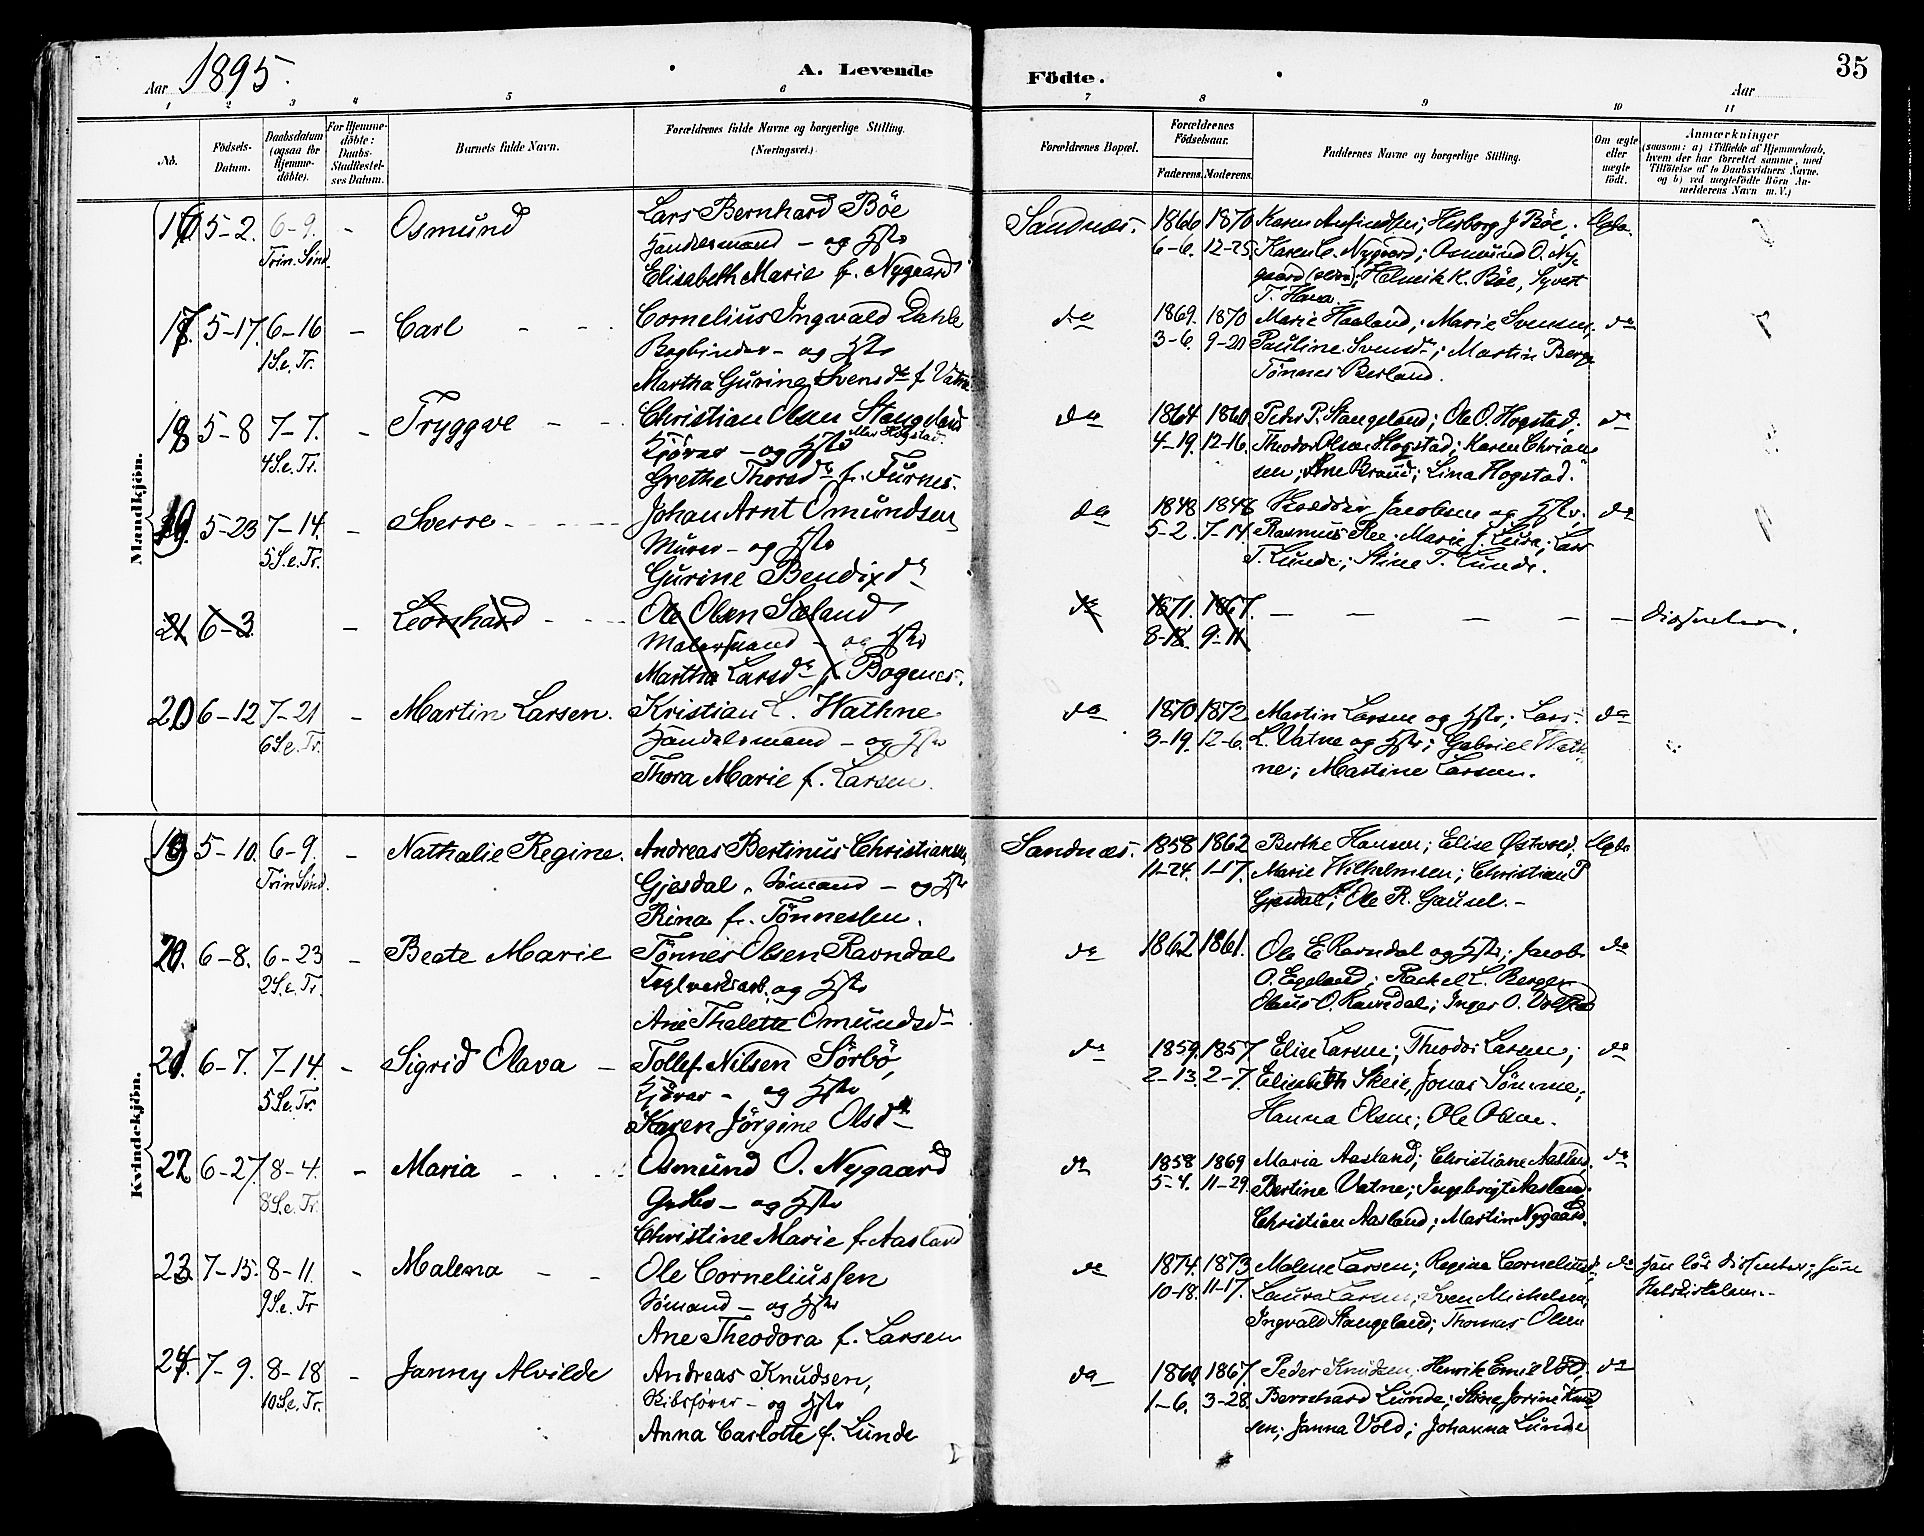 Aar 1895.
A. Levende Födte.
35
Aar
1 2 3 4 5 6 7 8 9 10 11
No.
Födsels-Datum.
Daabsdatum (ogsaa for Hjemme-döbte).
For Hjemme-döbte: Daabs-Stadfæstel-ses Datum.
Barnets fulde Navn.
Forældrenes fulde Navne og borgerlige Stilling.
(Næringsvei.)
Forældrenes Bopæl.
Forældrenes Födselsaar.
Faderens. Moderens.
Faddernes Navne og borgerlige Stilling.
Om ægte eller uægte födt.
Anmærkninger
(saasom: a) i Tilfælde af Hjemmedaab,
hvem der har forrettet samme, med
Tilföielse af to Daabsvidners Navne.
og b) ved uægtefödte Börn An-
melderens Navn m. V.)
Mandkjön.
16 5-2. 6-9. - Osmund Lars Bernhard Böe Sandnæs. 1866 1870 Karen Aufindsen; Herborg J Böe.
Trin. Sönd. Handelsmand - og Hstr 6-6. 12-25. Karen C. Nygaard; Osmund O. Ny-
Elisabeth Marie f. Nygaard gaard; Helmik K. Böe, Syvert
T. Hana.
17. 5-17. 6-16 - Carl - - Cornelius Ingvald Dahle do 1869. 1870 Marie Haaland; Marie Svensen; do
1 S. e. Tr. Bogbinder - og Hstr 3-6. 9-20 Pauline Svensdr; Martin Berge
Martha Gurine Svensdr f. Vatne Tönnes Berland.
18 5-8 7-7. - Tryggve - - Christian Olsen Stangeland do 1864 1860 Peder P. Stangeland; Ole O. Hogstad; do
4 S. e. Tr. Kjörer - og Hstr 4-19. 12-16. Theodor Olsen Hogstad; Karen Christian
Grethe Thorsdr f. Furnes. sen; Ane Braud; Lina Hogstad.
19 5-23 7-14. - Sverre - - - Johan Arnt Omundsen do 1848 1848 Jacobsen og Hstr; do
5 S. e. Tr. Murer - og Hstr 5-2. 7-14. Rasmus Ree; Marie J. Lura; Lars
Gurine Bendixdr T. Lunde; Stine T. Lunde.
21 6-3. - Leonhard - - - Ole Olsen Sæland do 1871. 1867. - - - - - Dissenter.
Malersvend - og Hstr 8-18. 9-11
Martha Larsdr f. Bogenes.
20 6-12 7-21 - Martin Larsen. Kristian L. Wathne do 1870 1872 Martin Larsen og Hstr; Lars do
6 S. e. Tr. Handelsmand - og Hstr 3-19. 12-6. L. Vatne og Hstr; Gabriel Wath-
Thora Marie f. Larsen. ne; Martine Larsen.
Kvindekjön.
19 5-10. 6-9. - Nathalie Regine. Andreas Bertinus Christiansen, Sandnæs. 1858 1862 Berthe Hansen; Elise Östvold;
Trin Sönd. Gjesdal, Sömand - og Hstr 11-24. 1-17. Marie Wilhelmsen; Christian P
Rina f. Tönnessen. Gjesdal; Ole R. Gausel. -
20. 6-8. 6-23 - Beate Marie Tönnes Olsen Ravndal do 1862 1861. Ole E Ravndal og Hstr; Jacob do
2 S. e. Tr. Teglverksarb. og Hstr O. Egeland; Rachel L. Berge;
Ane Thalette Omundsd- Olaus O. Ravndal; Inger O.
21. 6-7. 7-14. - Sigrid Olava - Tollef Nilsen Sörbö, do 1859. 1857. Elise Larsen; Theodor Larsen; do
5 S. e. Tr. Kjörer - og Hstr 2-13. 2-7. Elisabeth Skeie, Jonas Sömme;
Karen Jörgine Olsdr- Hanna Olsen; Ole Olsen.
22 6-27. 8-4. - Maria - - - Osmund O. Nygaard do 1858 1869 Maria Aasland; Christiane Aasland. do
8 S. e. Tr. - og Hstr 5-4. 11-29. Bertine Vatne; Ingebrigt Aasland;
Christine Marie f. Aasland Christian Aasland; Martin Nygaard.
23. 7-15. 8-11. - Malena - - Ole Corneliussen do 1874. 1873 Malene Larsen; Regine Corneliusd; do Han lös Dissenter; hun
9 S. e. Tr Sömand - og Hstr 10-18. 11-17. Laura Larsen; Sven Michelsen; Statskirken.-
Ane Theodora f. Larsen Ingvald Stangeland; Thomas Olsen
24. 7-9. 8-18 - Janny Alvilde Andreas Knudsen, do 1860. 1867. Peder Knudsen. Henrik Emil Vold; do
10 S. e. Tr. Skibsförer - og Hstr 1-6. 3-28. Bernhard Lunde; Stine Jorine Knud
Anna Carlotte f. Lunde sen; Janna Vold; Johanna Lunde